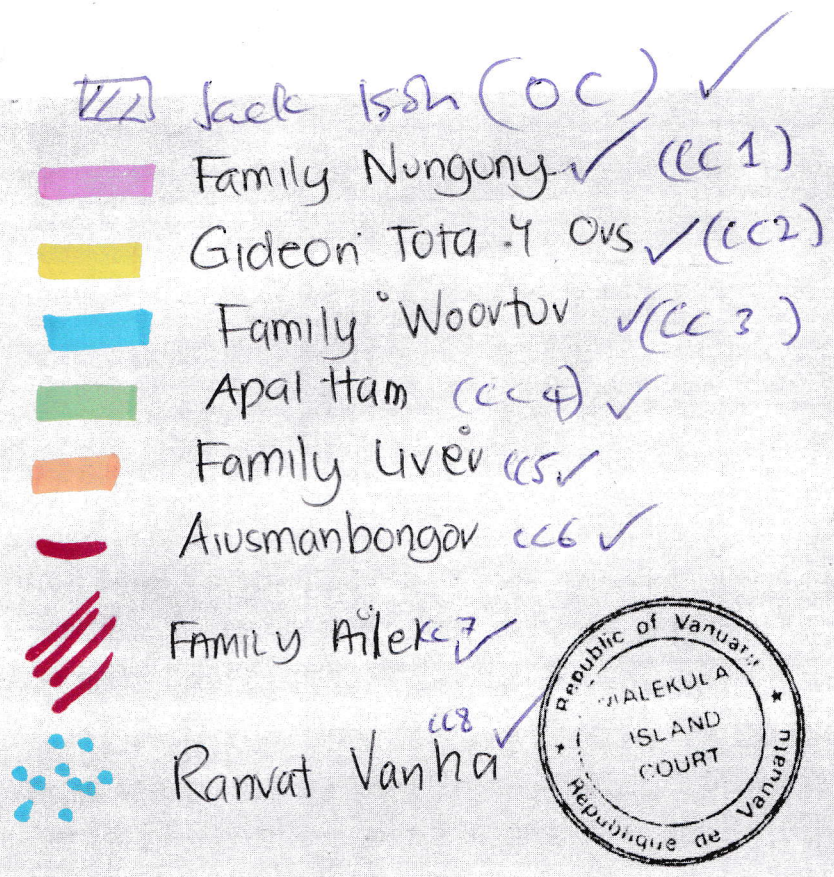 Jack Ison (OC) ✓
Family Nunguny ✓ (CC1)
Gideon Tota .Y Ovs ✓ (CC2)
Family Woortur ✓ (CC3)
Apal Ham (CC4) ✓
Family Liver CC5 ✓
Aiusmanbongor CC6 ✓
FAMILY Ailek CC7 ✓
Ranvat Vanha CC8 ✓
Republic of Vanuatu
MALEKULA
ISLAND
COURT
Republique de Vanuatu